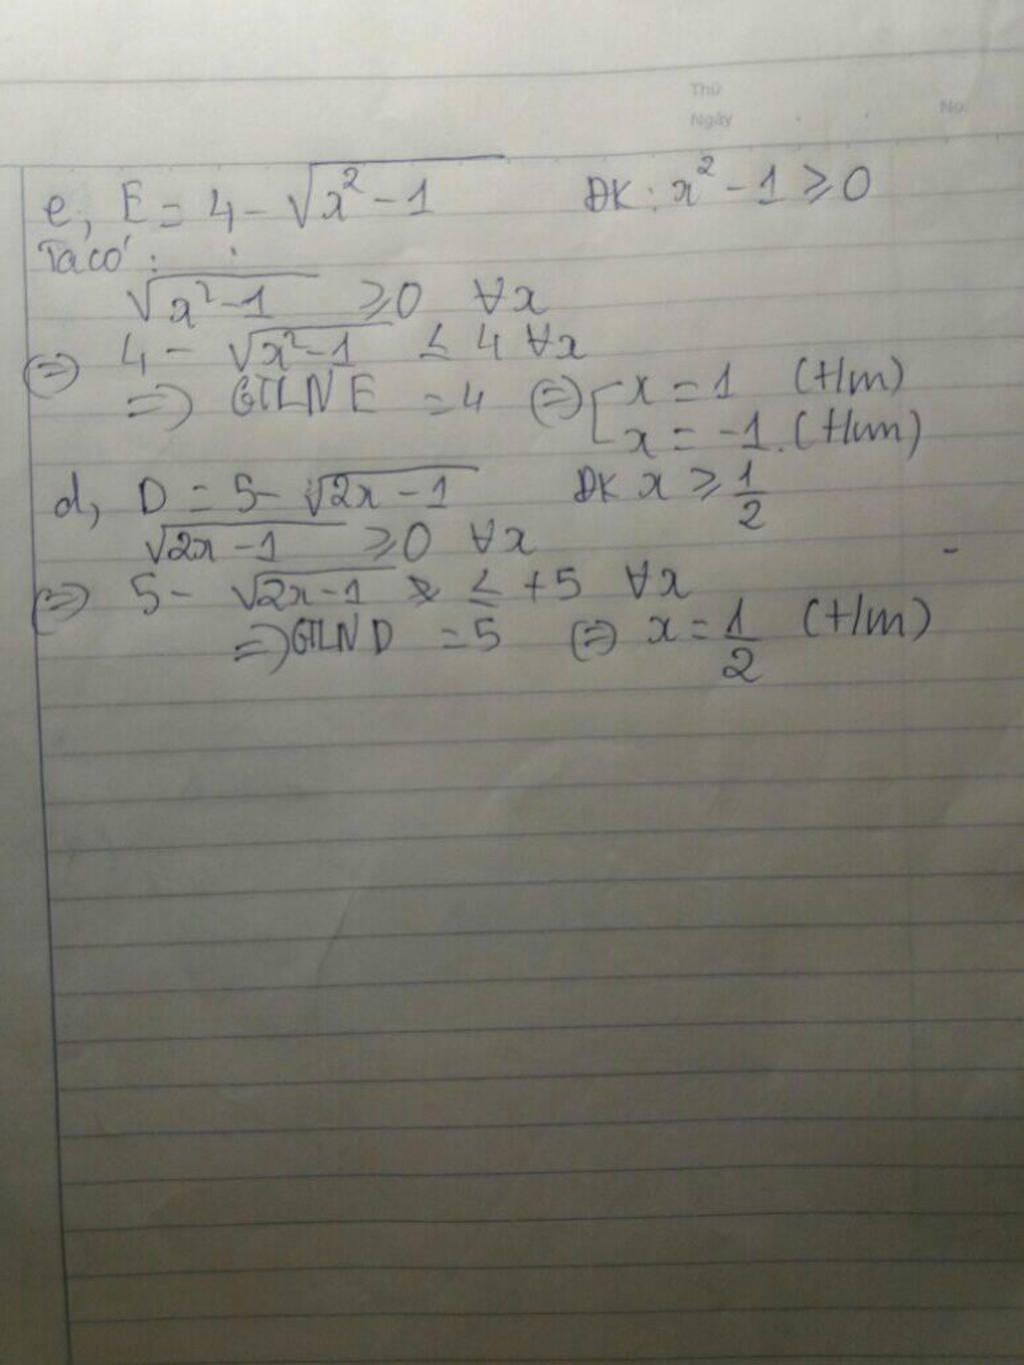 Thứ
Ngày No
e, E = 4 - √(x² - 1) ĐK: x² - 1 ≥ 0
Ta có:
√(x² - 1) ≥ 0 ∀x
(=) 4 - √(x² - 1) ≤ 4 ∀x
=) GTLN E = 4 (=) [ x = 1 (t/m)
x = -1. (t/m)
d, D = 5 - √(2x - 1) ĐK x ≥ 1/2
√(2x - 1) ≥ 0 ∀x
(=) 5 - √(2x - 1) ≤ +5 ∀x
=) GTLN D = 5 (=) x = 1/2 (t/m)